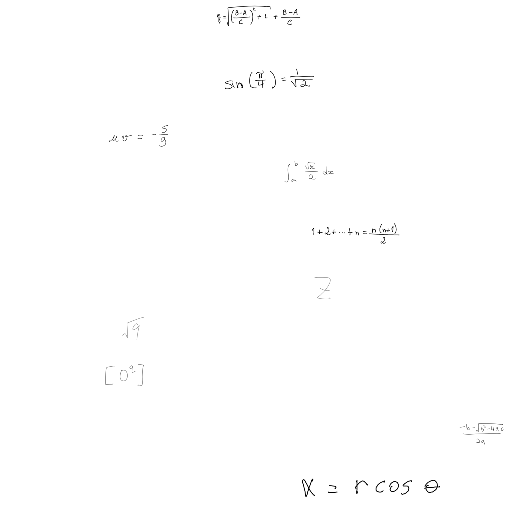 q = √((B-A)/C)² + 1 + (B-A)/C
sin (π/4) = 1/√2
uv = -5/9
∫ √x/a dx
1 + 2 + ... + n = n(n+1)/2
Z
√9
[0°]
-b-√(b²-4ac)/2a
x = r cos θ